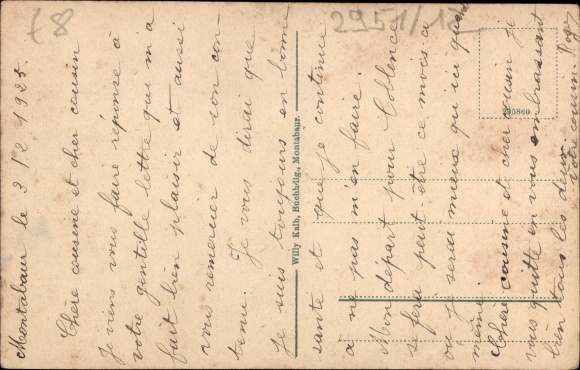 Montabaur le 3 12 1925.
Chère cousine et cher cousin
Je viens vous faire réponse à
votre gentille lettre qui m'a
fait bien plaisir et aussi
vous remercier de son con-
tenu. Je vous dirai que
je suis toujours en bonne
Willy Kalb, Buchhdlg., Montabaur.
santé et que je continue
à ne pas m'en faire.
Mon départ pour Coblence
se fera peut-être ce mois-ci
où je serai mieux qu'ici quand
même.
Chère cousine et cher cousin je
vous quitte en vous embrassant
bien tous les deux.
Votre cousin.
68
2951/12
295860